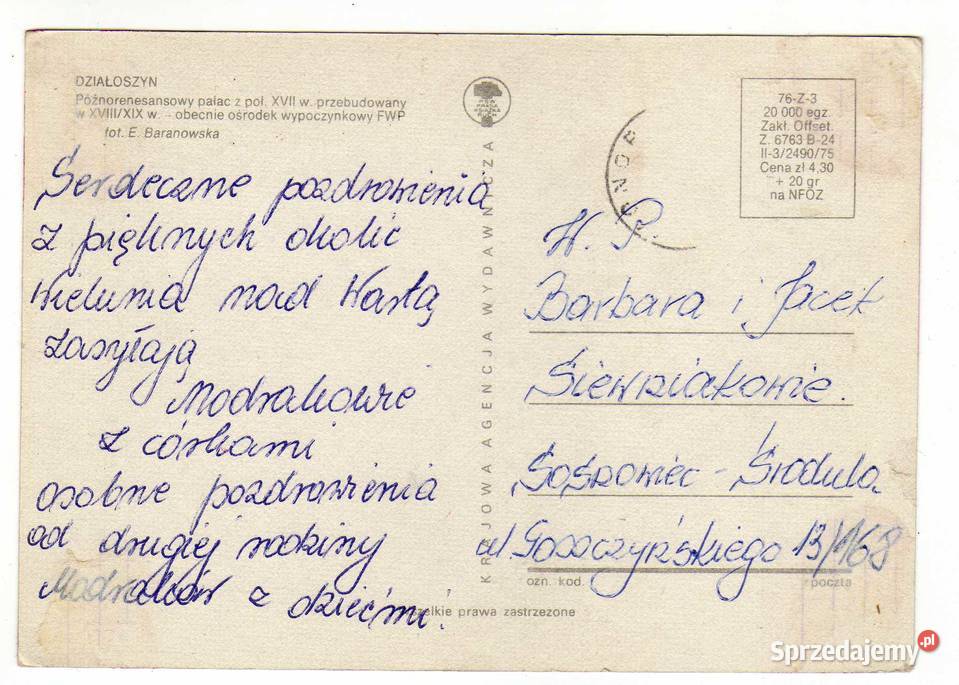 DZIAŁOSZYN
Późnorenesansowy pałac z poł. XVII w. przebudowany
w XVIII/XIX w. - obecnie ośrodek wypoczynkowy FWP
fot. E. Baranowska
Serdeczne pozdrowienia
z pięknych okolic
Wielunia nad Wartą
zasyłają
Modrakowie
z córkami
osobne pozdrowienia
od drugiej rodziny
Modraków z dziećmi!
KRAJOWA AGENCJA WYDAWNICZA
76-Z-3
20 000 egz.
Zakł. Offset.
Z. 6763 B-24
II-3/2490/75
Cena zł 4,30
+ 20 gr
na NFOZ
W. P.
Barbara i Jacek
Siewniakowie.
Sosnowiec - Środula
ul Goszczyńskiego 13/168
ozn. kod. poczta
wszelkie prawa zastrzeżone
Sprzedajemy.pl